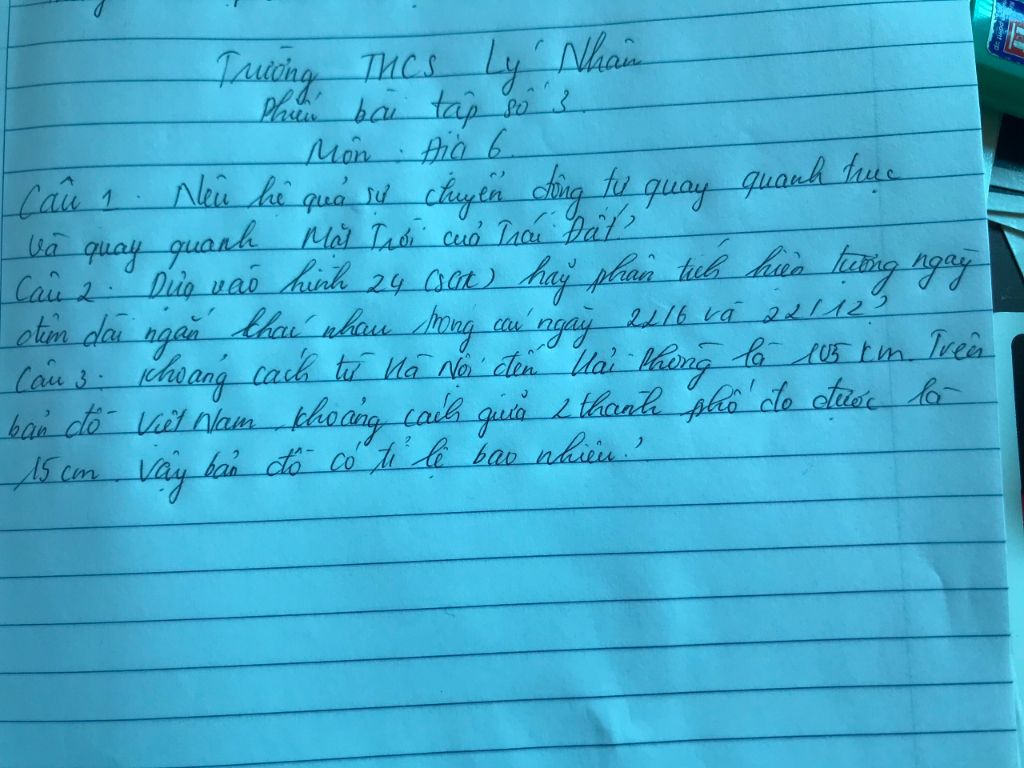 Trường THCS Lý Nhân
Phiếu bài tập số 3
Môn: Địa 6.
Câu 1. Nêu hệ quả sự chuyển động tự quay quanh trục
và quay quanh Mặt Trời của Trái Đất?
Câu 2. Dựa vào hình 24 (SGK) hãy phân tích hiện tượng ngày
đêm dài ngắn khác nhau trong các ngày 22/6 và 22/12?
Câu 3. Khoảng cách từ Hà Nội đến Hải Phòng là 105 km. Trên
bản đồ Việt Nam khoảng cách giữa 2 thành phố đo được là
15 cm. Vậy bản đồ có tỉ lệ bao nhiêu?